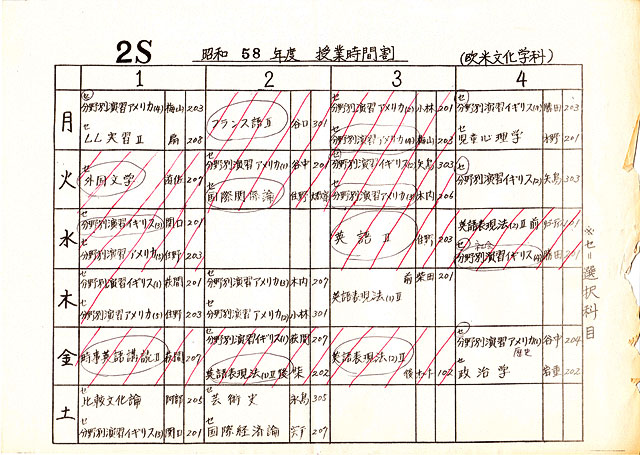 2S 昭和 58 年度 授業時間割 (欧米文化学科)
1 2 3 4
月
セ
分野別演習アメリカ(4) 梅山 203
セ
LL実習Ⅱ 208
フランス語Ⅱ 谷口 301
セ
分野別演習アメリカ(2) 小林 201
セ
分野別演習アメリカ(4) 梅山 203
セ
分野別演習イギリス(3) 勝田 203
セ
児童心理学 水野 201
火
セ
外国文学 207
セ
分野別演習アメリカ(1) 谷中 201
セ
国際関係論 佳野
セ
分野別演習イギリス(2) 矢島 303
セ
分野別演習アメリカ(3) 木内 206
セ
分野別演習イギリス(2) 矢島 303
水
セ
分野別演習イギリス(3) 関口 201
セ
分野別演習アメリカ(5) 佳野 203
英語Ⅱ 佳野 203
英語表現法(2)Ⅱ 前 201
セ
分野別演習イギリス(4) 勝田 201
木
セ
分野別演習イギリス(1) 萩間 201
セ
分野別演習アメリカ(5) 佳野 203
セ
分野別演習アメリカ(3) 木内 207
セ
分野別演習アメリカ(2) 小林 301
前 柴田 201
英語表現法(1)Ⅱ
金
時事英語講読Ⅱ 萩間 207
セ
分野別演習イギリス(1) 萩間 207
英語表現法(1)Ⅱ 後 柴 202
英語表現法(2)Ⅱ
後 102
セ
分野別演習アメリカ(1) 谷中 204
歴史
セ
政治学 岩重 202
土
セ
比較文化論 阿部 205
セ
分野別演習イギリス(3) 関口 201
セ
芸術史 永島 305
セ
国際経済論 宍戸 207
※セ=選択科目